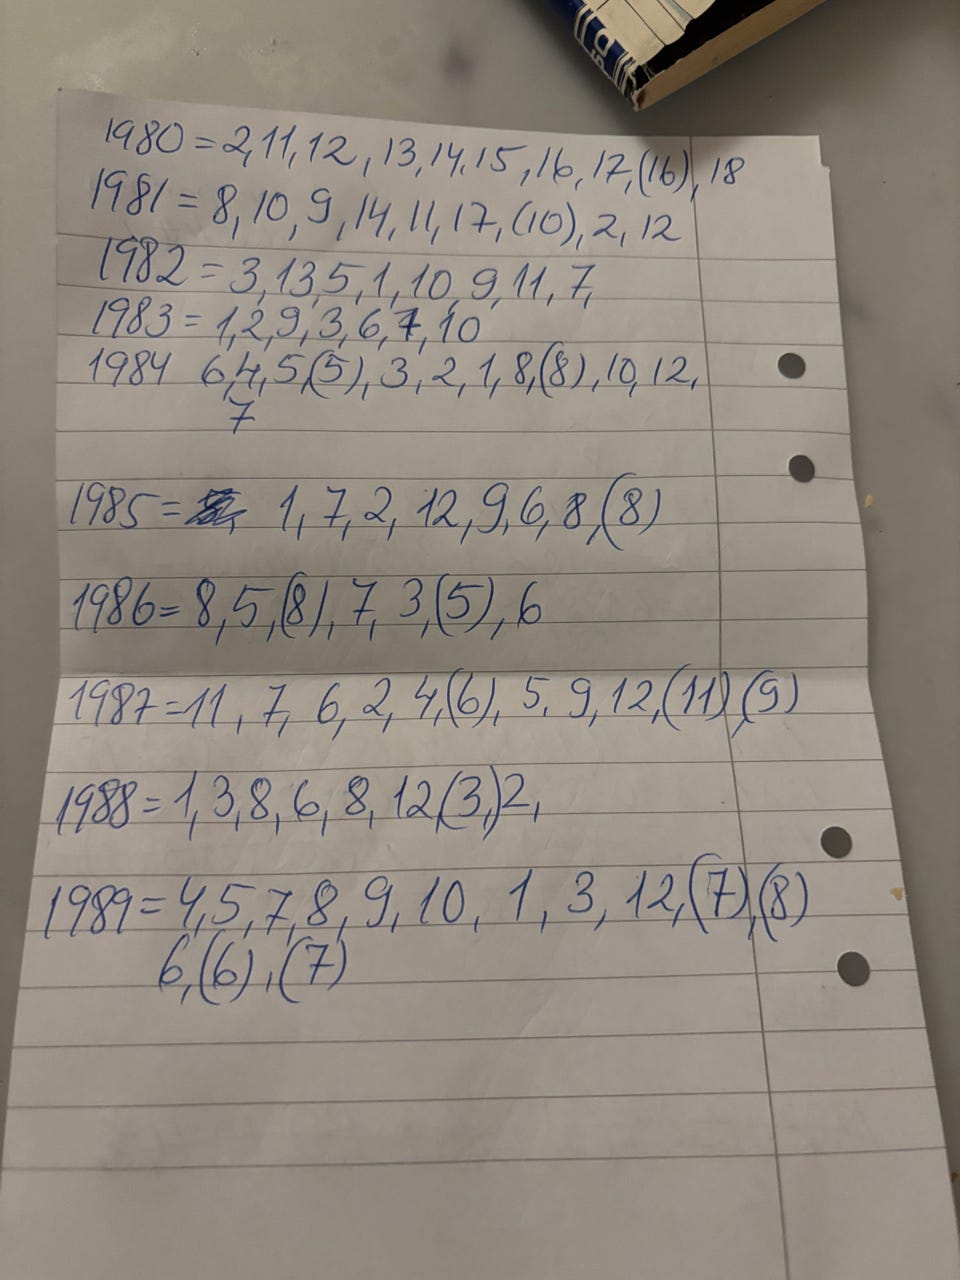 1980 = 2,11,12,13,14,15,16,17,(16),18
1981 = 8,10,9,14,11,17,(10),2,12
1982 = 3,13,5,1,10,9,11,7,
1983 = 1,2,9,3,6,7,10
1984 6,4,5,(5),3,2,1,8,(8),10,12,
7
1985 = 1,7,2,12,9,6,8,(8)
1986 = 8,5,(8),7,3,(5),6
1987 = 11,7,6,2,4,(6),5,9,12,(11),(9)
1988 = 1,3,8,6,8,12(3,)2,
1989 = 4,5,7,8,9,10,1,3,12,(7),(8)
6,(6),(7)